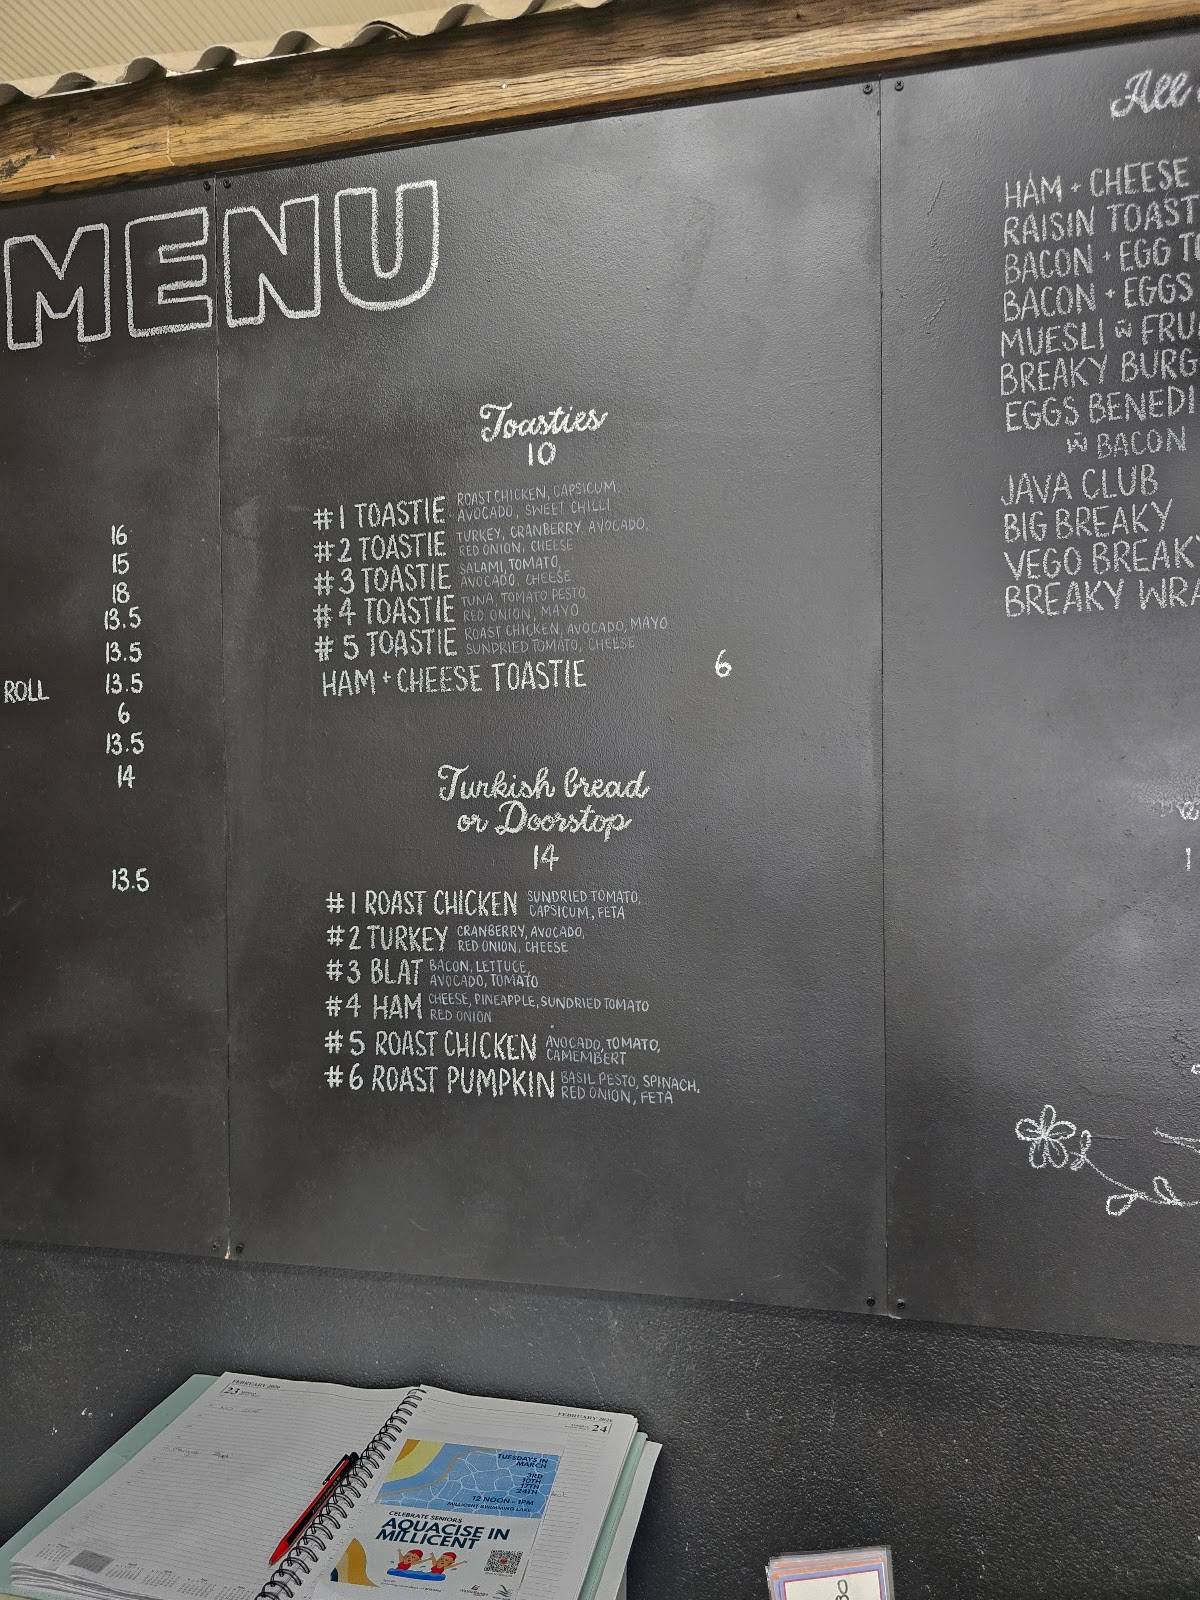 MENU
16
15
18
13.5
13.5
ROLL 13.5
6
13.5
14
13.5
Toasties
10
#1 TOASTIE ROAST CHICKEN, CAPSICUM,
AVOCADO, SWEET CHILLI
#2 TOASTIE TURKEY, CRANBERRY, AVOCADO,
RED ONION, CHEESE
#3 TOASTIE SALAMI, TOMATO,
AVOCADO, CHEESE
#4 TOASTIE TUNA, TOMATO PESTO,
RED ONION, MAYO
#5 TOASTIE ROAST CHICKEN, AVOCADO, MAYO
SUNDRIED TOMATO, CHEESE
HAM + CHEESE TOASTIE 6
Turkish bread
or Doorstop
14
#1 ROAST CHICKEN SUNDRIED TOMATO,
CAPSICUM, FETA
#2 TURKEY CRANBERRY, AVOCADO,
RED ONION, CHEESE
#3 BLAT BACON, LETTUCE,
AVOCADO, TOMATO
#4 HAM CHEESE, PINEAPPLE, SUNDRIED TOMATO
RED ONION
#5 ROAST CHICKEN AVOCADO, TOMATO,
CAMEMBERT
#6 ROAST PUMPKIN BASIL PESTO, SPINACH,
RED ONION, FETA
All
HAM + CHEESE
RAISIN TOAST
BACON + EGG TO
BACON + EGGS
MUESLI w FRU
BREAKY BURG
EGGS BENEDI
w BACON
JAVA CLUB
BIG BREAKY
VEGO BREAKY
BREAKY WRA
FEBRUARY
23
FEBRUARY
24
TUESDAYS IN
MARCH
3RD
10TH
17TH
24TH
12 NOON - 1PM
MILLICENT SWIMMING LAKE
CELEBRATE SENIORS
AQUACISE IN
MILLICENT